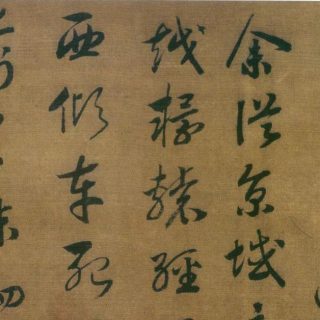 余從京域
越轘轅經
西傾車殆